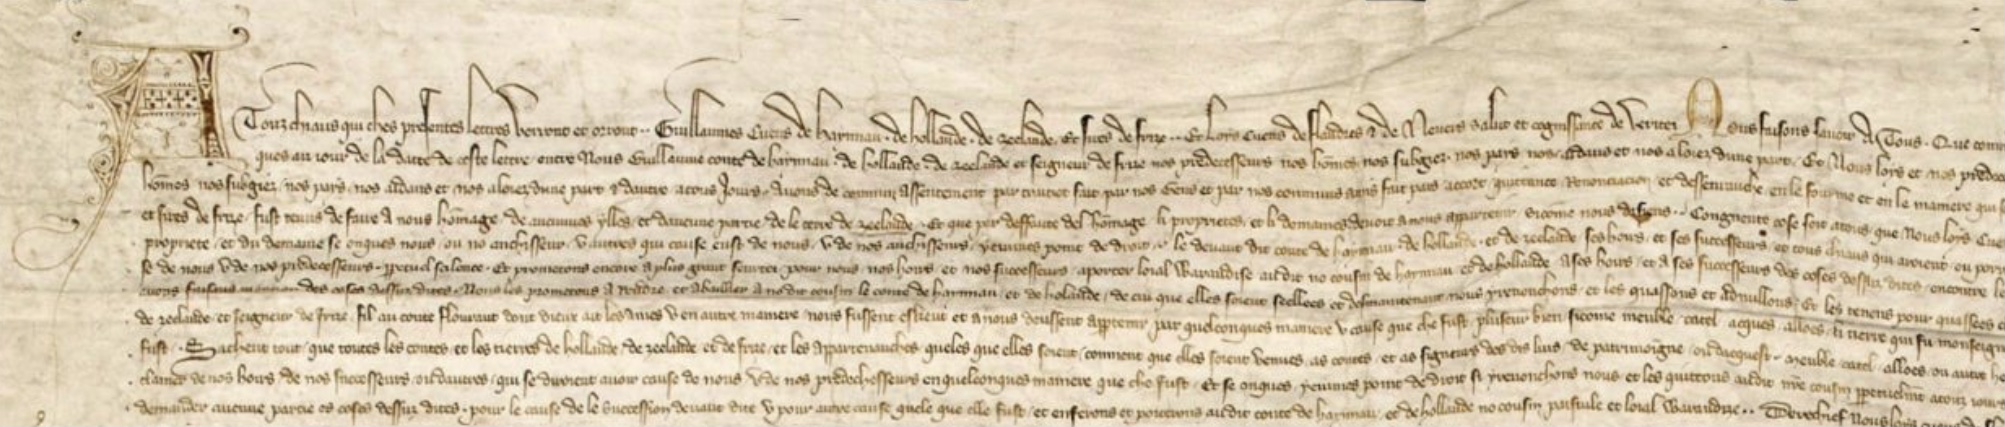 A Touz chiaus qui ches presentes lettres verront et orront. Guillaumes Cuens de Haynnau. de Hollande. de Zeelande. Et sires de frize. Et Loys Cuens de flandres & de Nevers salut et cognissance de veritei. Nous faisons savoir A Tous. Que comme
ques au jour de la datte de ceste lettre. entre Nous Guillaume conte de haynnau. de hollande. de zeelande et seigneur de frize nos predecesseurs nos homes nos subgiez. nos pays nos aidans et nos aloiez dune part. Et Nous loys et nos predec
homes nos subgiez. nos pays. nos aidans et nos aloiez dune part & dautre. a tous Jours. Avons de commun assentement par traitiet fait par nos Gens et par nos communs amis fait pais accort. quittance. Renonciacion. et en le fourme et en le maniere qui
et sires de frize. fust tenus de faire A nous homage. de aucunes ylles. et daucune partie de le terre de zeelande. Et que par deffaute del homage. li proprietes. et li domaines devoit a nous appartenir. sicome nous Congneute cose soit atous. que Nous loys Cue
propriete. et du demaine se onques nous. ou no anchisseur. v autres qui cause eust de nous. v de nos anchisseurs. yeuimes point de droit. le devant dit conte de haynnau. de hollande. et de zeelande ses hoirs. et ses successeurs. et tous chiaus qui avoient. ou
se de nous v de nos predecesseurs. perpetuel silence. Et prometons encore a plus grant seurtei pour nous. nos hoirs et nos successeurs. aporter loial Warandise audit no cousin de haynnau. et de hollande. a ses hoirs. et a ses successeurs des coses dessus dites. encontre
des coses dessus dites. Nous les prometons A rendre. et a baillier A no dit cousin le conte de haynnau. et de holande. de cui que elles soient seellees. et desmaintenant nous yrenonchons. et les quassons et adnullons. Et les tenons pour quassees
de zeelande. et seigneur de frize. fil au conte flourant dont dieux ait les ames v en autre maniere. nous fussent eskeut et a nous deussent appartenir. par quelconques maniere v cause que che fust. pluseur bien sicome meuble. catel. acques. alloes. li tierre qui fu monseign
fust. Sachent tout. que toutes les contes. et les tierres de hollande. de zeelande et de frize. et les appartenanches queles que elles soient. comment que elles soient venues. as contes. et as signeurs des dis lius. de patrimoigne. ou dacquest. meuble. catel. alloes. ou autre
clamer de nos hoirs. de nos successeurs. ou dautres. qui se diroient avoir cause de nous. v de nos predechesseurs en quelconques maniere que che fust. Et se onques. yeuimes point de droit si yrenonchons nous. et les quittons audit nre cousin perpetuelment
demander aucune partie es coses dessus dites. pour le cause de le succession devant dite v pour autre cause quele que elle fust. et en ferons et porterons audit conte de haynnau. et de hollande no cousin paisiule et loial Warandize. Derechief Nous loys